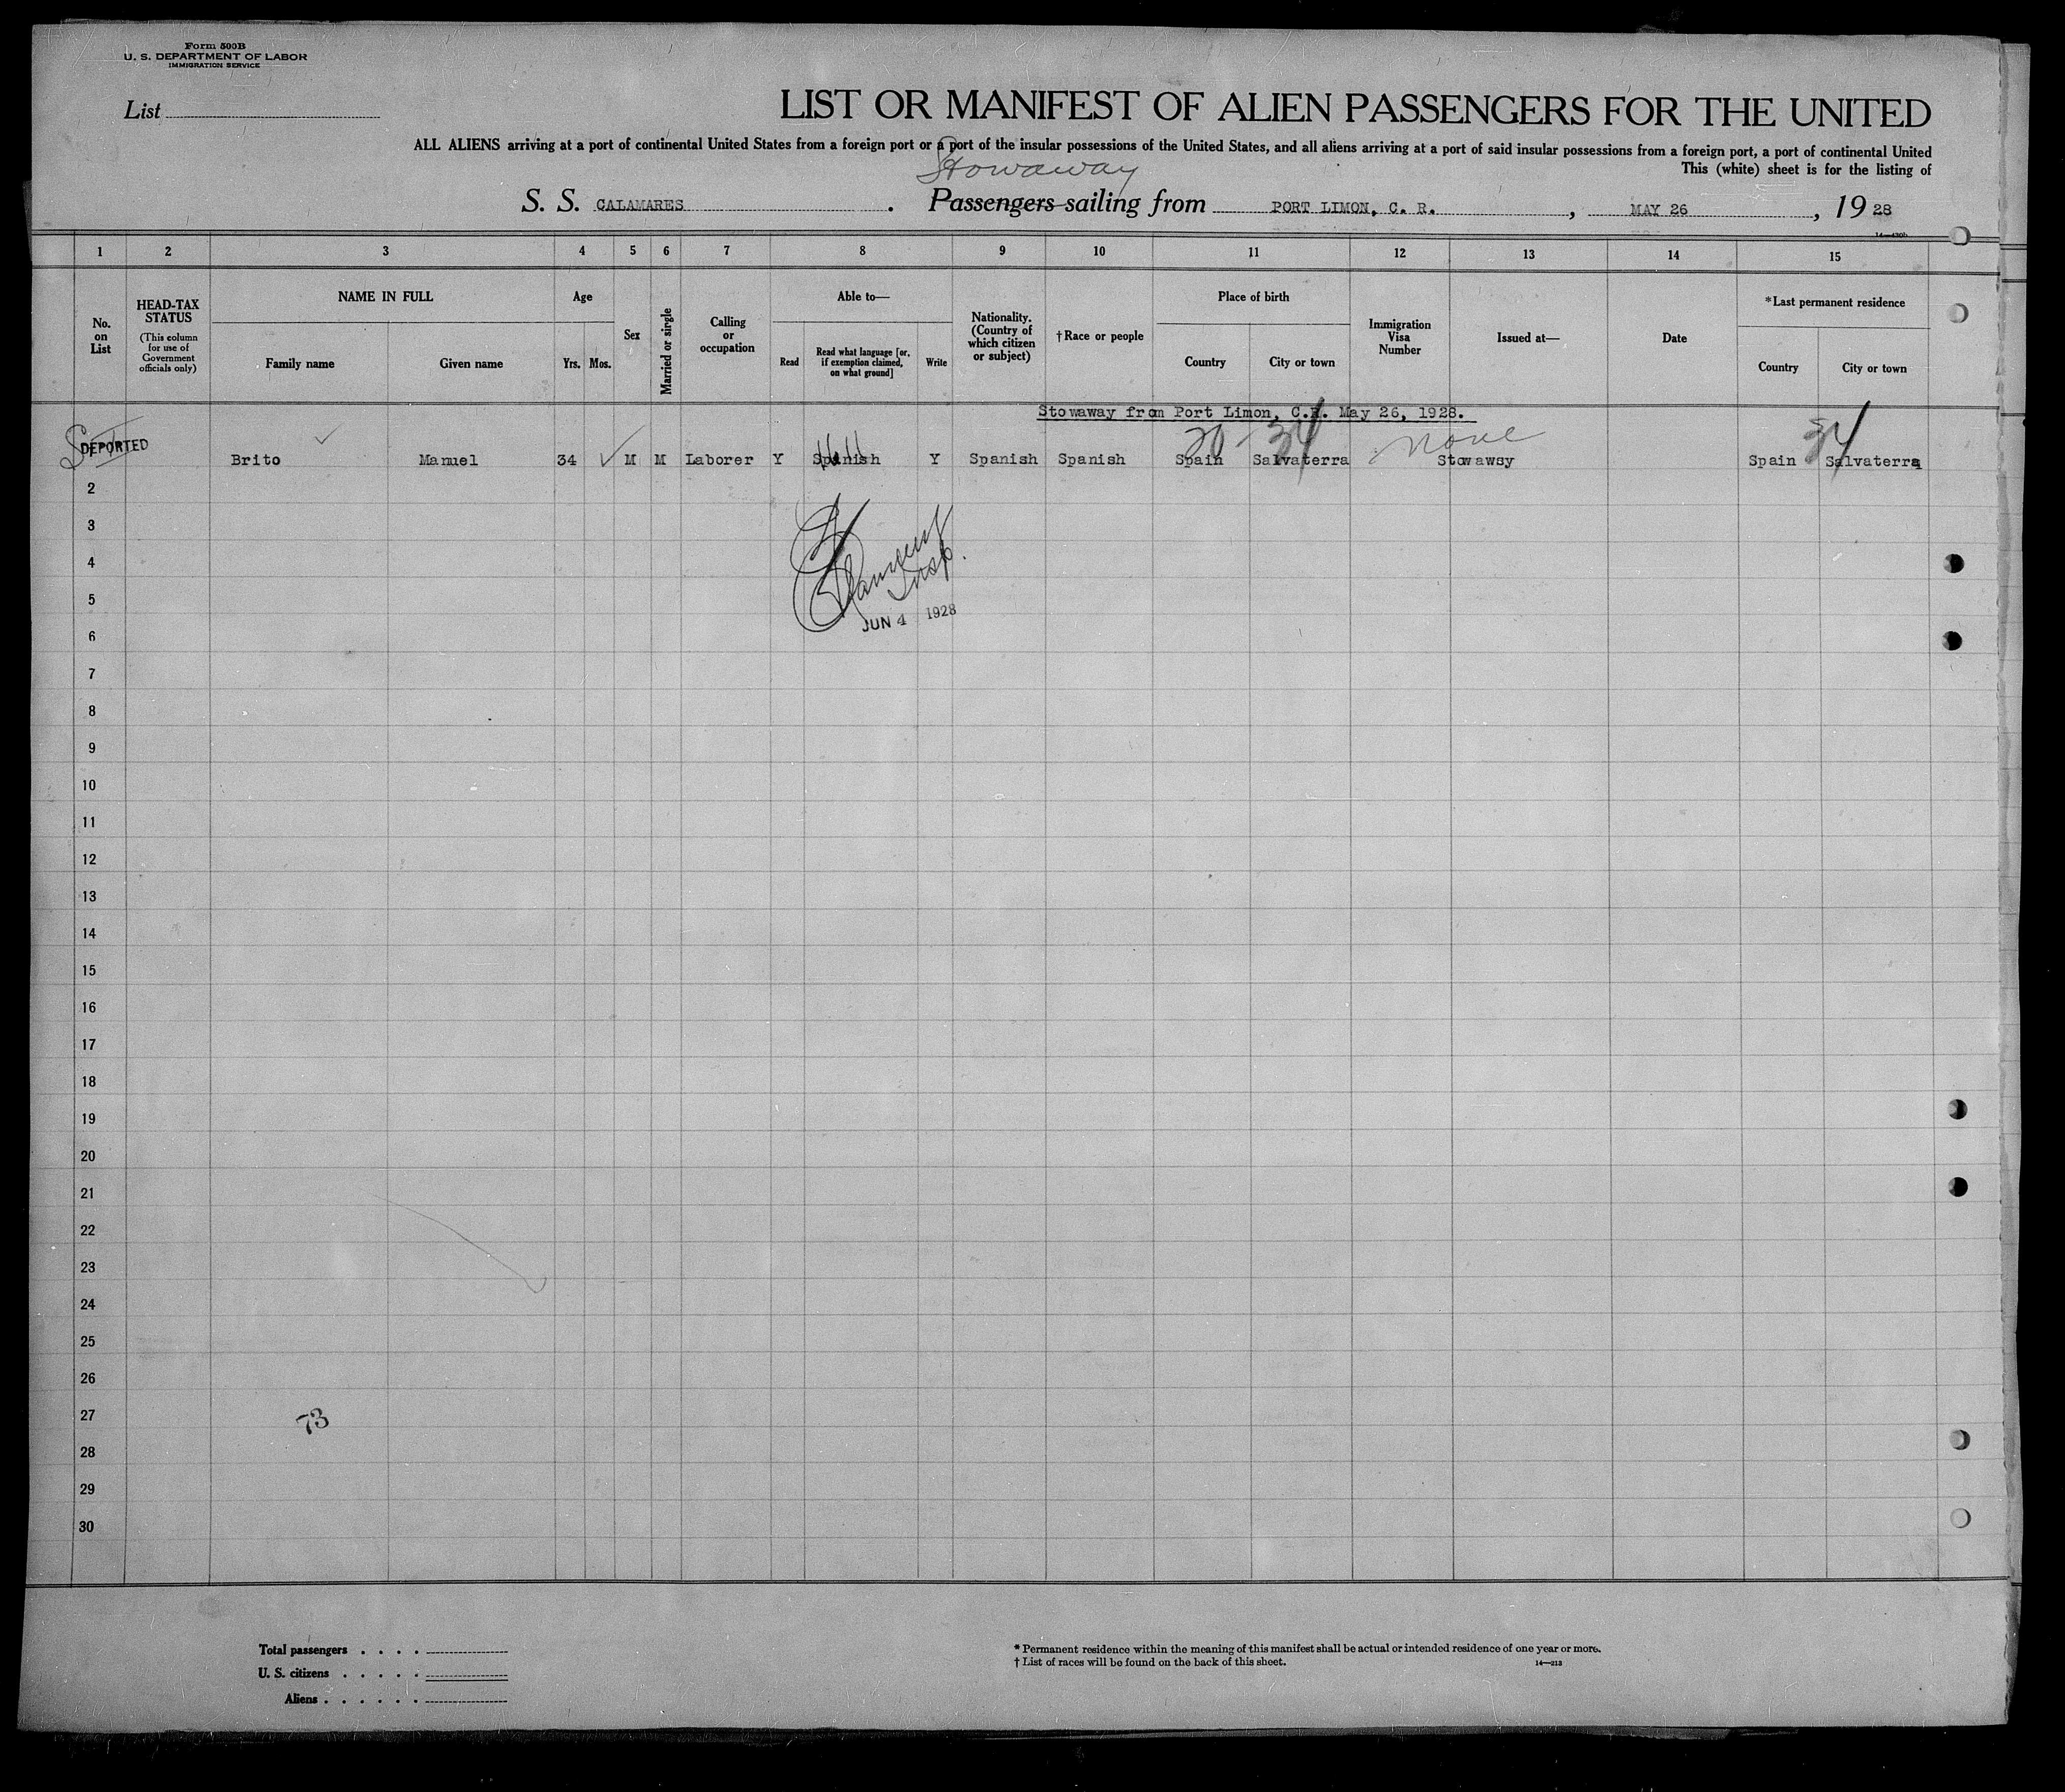 Form 500B
U. S. DEPARTMENT OF LABOR
IMMIGRATION SERVICE
List
LIST OR MANIFEST OF ALIEN PASSENGERS FOR THE UNITED
ALL ALIENS arriving at a port of continental United States from a foreign port or a port of the insular possessions of the United States, and all aliens arriving at a port of said insular possessions from a foreign port, a port of continental United
This (white) sheet is for the listing of
Stowaway
S. S. CALAMARES . Passengers sailing from PORT LIMON, C. R. , MAY 26 , 19 28
1 2 3 4 5 6 7 8 9 10 11 12 13 14 15
No. on List
HEAD-TAX STATUS
(This column for use of Government officials only)
NAME IN FULL
Family name Given name
Age
Yrs. Mos.
Sex
Married or single
Calling or occupation
Able to—
Read
Read what language [or, if exemption claimed, on what ground]
Write
Nationality. (Country of which citizen or subject)
†Race or people
Place of birth
Country City or town
Immigration Visa Number
Issued at—
Date
*Last permanent residence
Country City or town
Stowaway from Port Limon, C.R. May 26, 1928.
DEPORTED
20 - 34 none 34
Brito Manuel 34 M M Laborer Y Spanish Y Spanish Spanish Spain Salvaterra Stowawsy Spain Salvaterra
2
3
4
Insp.
5
JUN 4 1928
6
7
8
9
10
11
12
13
14
15
16
17
18
19
20
21
22
23
24
25
26
27
73
28
29
30
Total passengers . . . .
U. S. citizens . . . . .
Aliens . . . . . .
* Permanent residence within the meaning of this manifest shall be actual or intended residence of one year or more.
† List of races will be found on the back of this sheet.
14—213